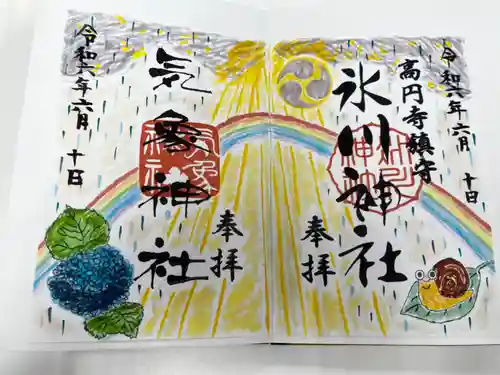 高円寺鎮守
氷川神社
奉拝
令和六年六月十日
気象神社
奉拝
令和六年六月十日